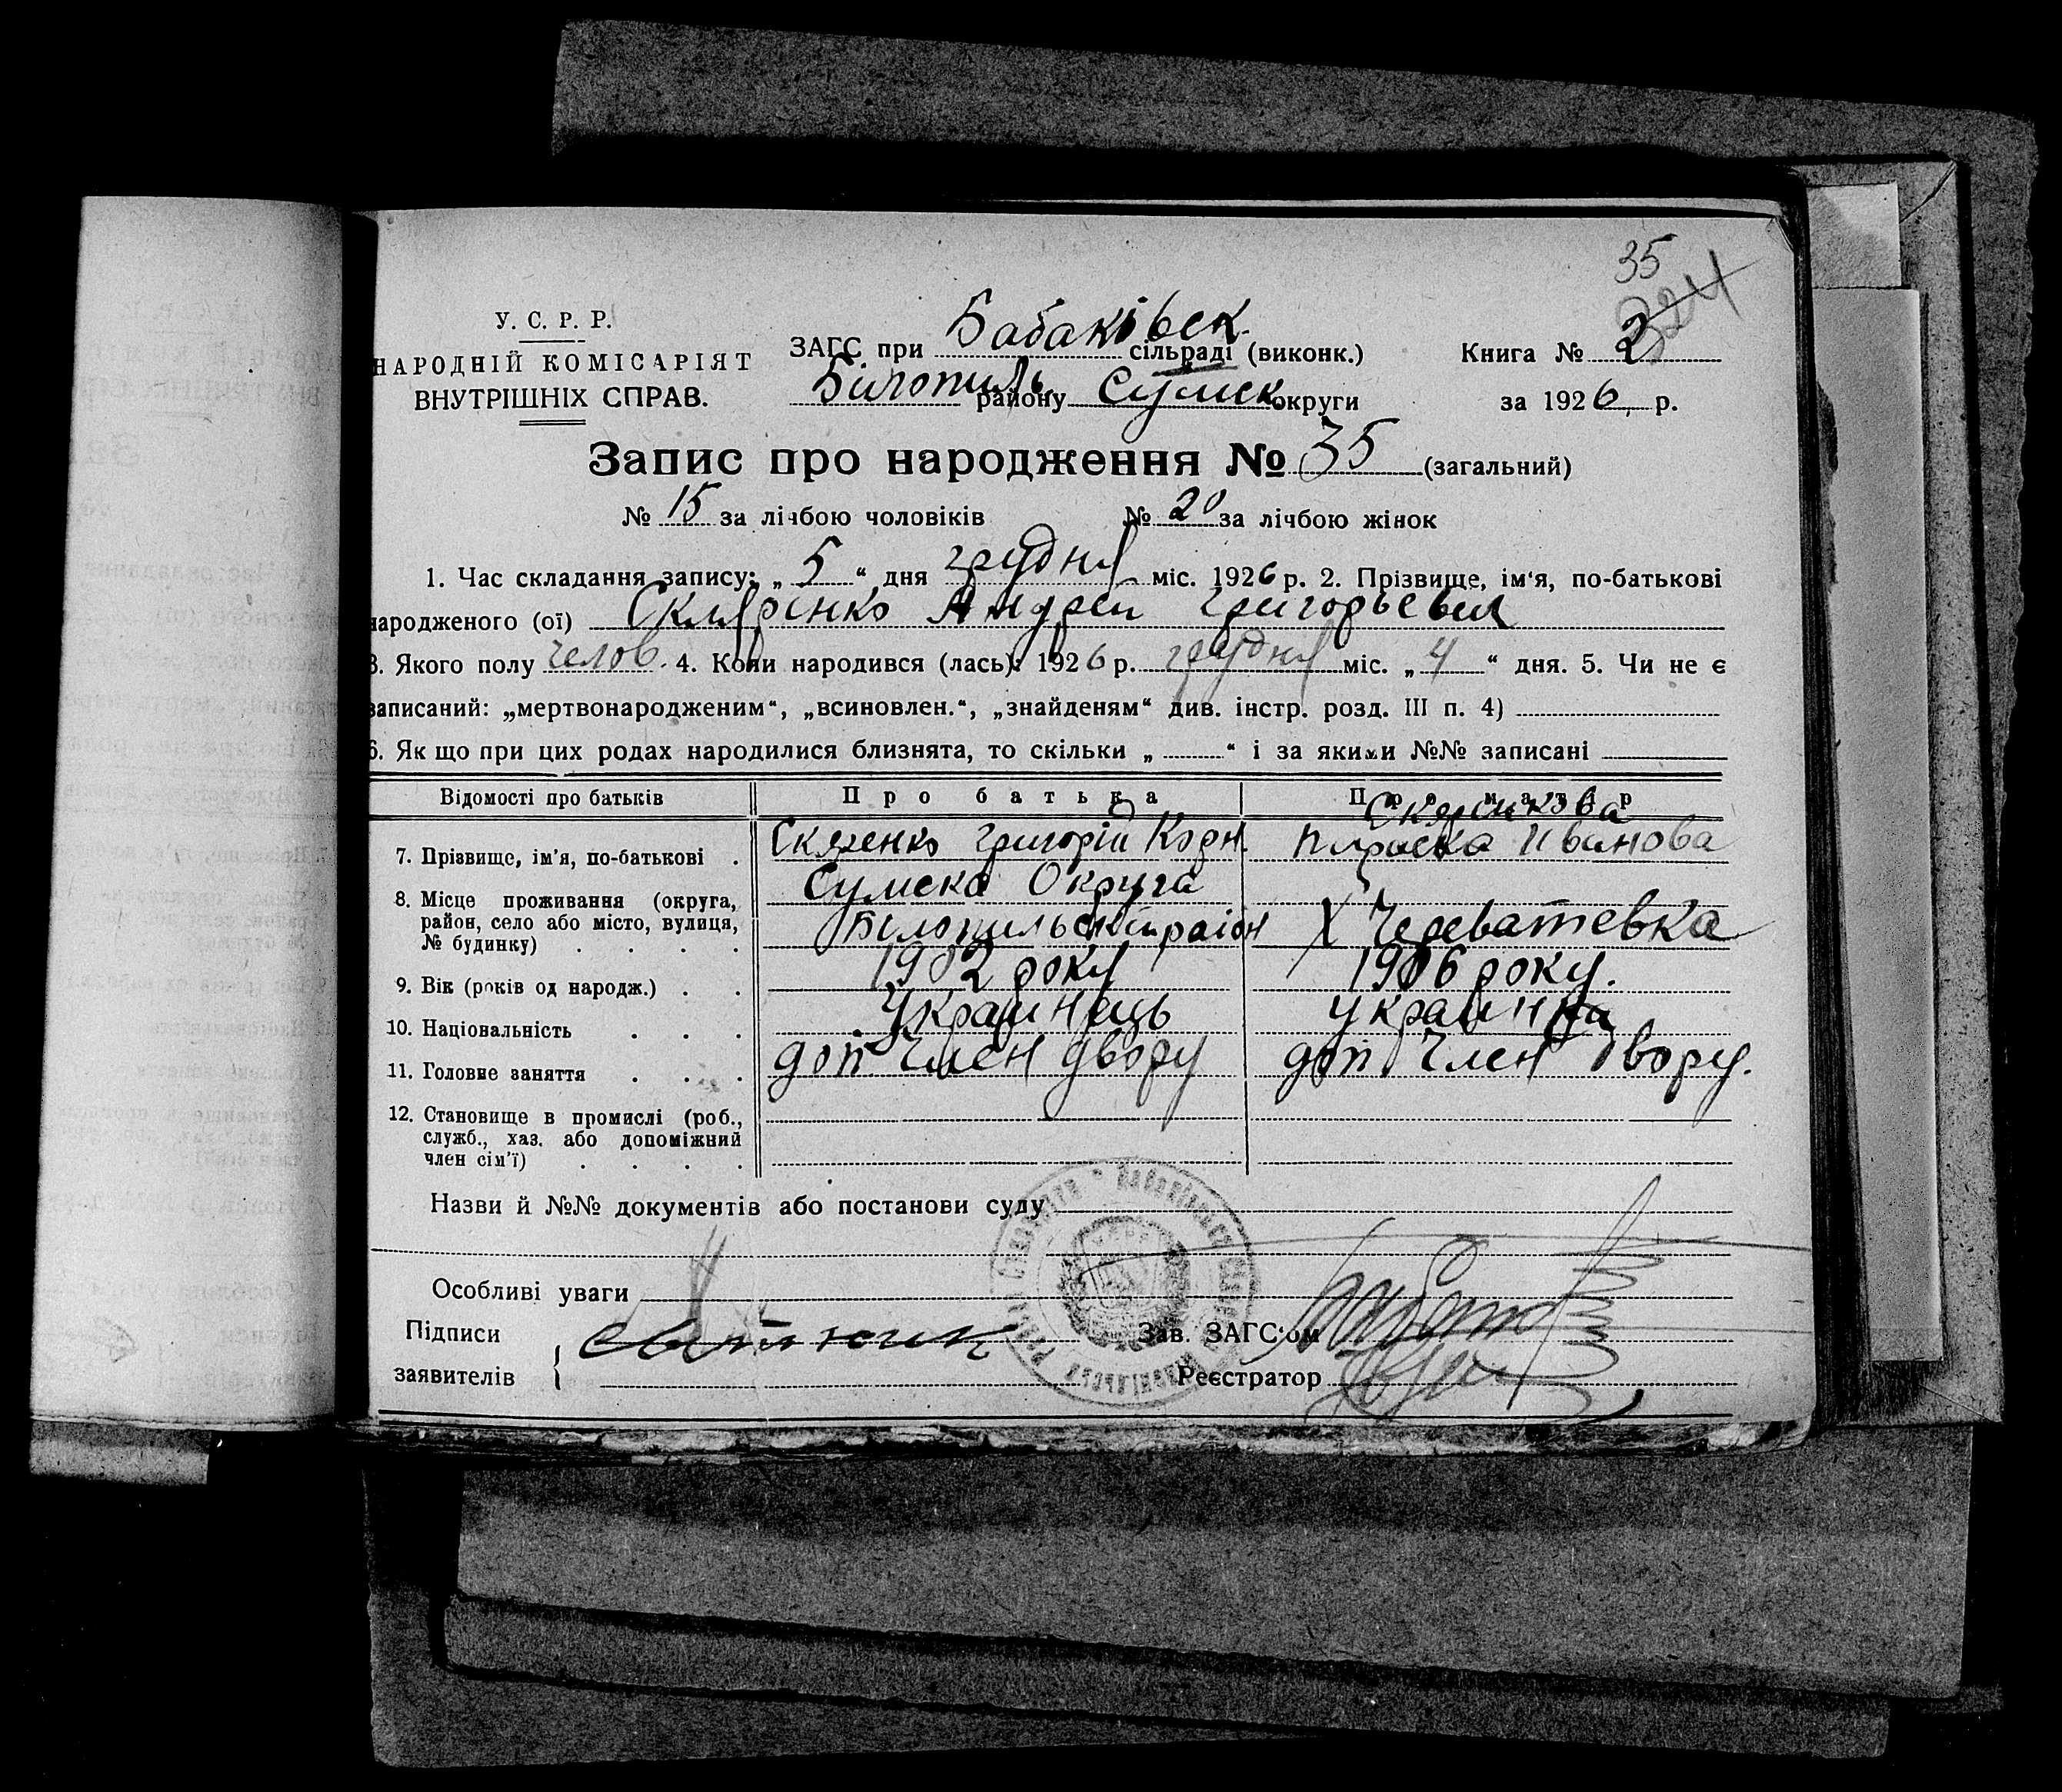 35
324
У. С. Р. Р.
НАРОДНІЙ КОМІСАРІЯТ
ВНУТРІШНІХ СПРАВ.
ЗАГС при Бабаківськ. сільраді (виконк.)
Білопиль району Сумськ округи
Книга № 2
за 1926 р.
Запис про народження № 35 (загальний)
№ 15 за лічбою чоловіків № 20 за лічбою жінок
1. Час складання запису: „ 5 “ дня грудня міс. 1926 р. 2. Прізвище, ім‘я, по-батькові
народженого (ої) Скляренко Андрей Григорьевич
3. Якого полу челов. 4. Коли народився (лась): 1926 р. грудня міс. „ 4 “ дня. 5. Чи не є
записаний: „мертвонародженим“, „всиновлен.“, „знайденям“ див. інстр. розд. III п. 4)
6. Як що при цих родах народилися близнята, то скільки „ “ і за якими №№ записані
Відомості про батьків Про батька Про матір
7. Прізвище, ім’я, по-батькові . Скляренко Григорій Корн. Скляренкова Параска Иванова
8. Місце проживання (округа, район, село або місто, вулиця, № будинку) . . . . Сумска Округа
Білопильський район Х Череватевка
9. Вік (років од народж.) . . 1902 року 1906 року.
10. Національність . . . Украинець Украинка
11. Головне заняття . . . доп член двору доп член двору.
12. Становище в промислі (роб., служб., хаз. або допоміжний член сім’ї) . . . .
Назви й №№ документів або постанови суду
Особливі уваги
Підписи
заявителів
Зав. ЗАГС‘ом
Реєстратор